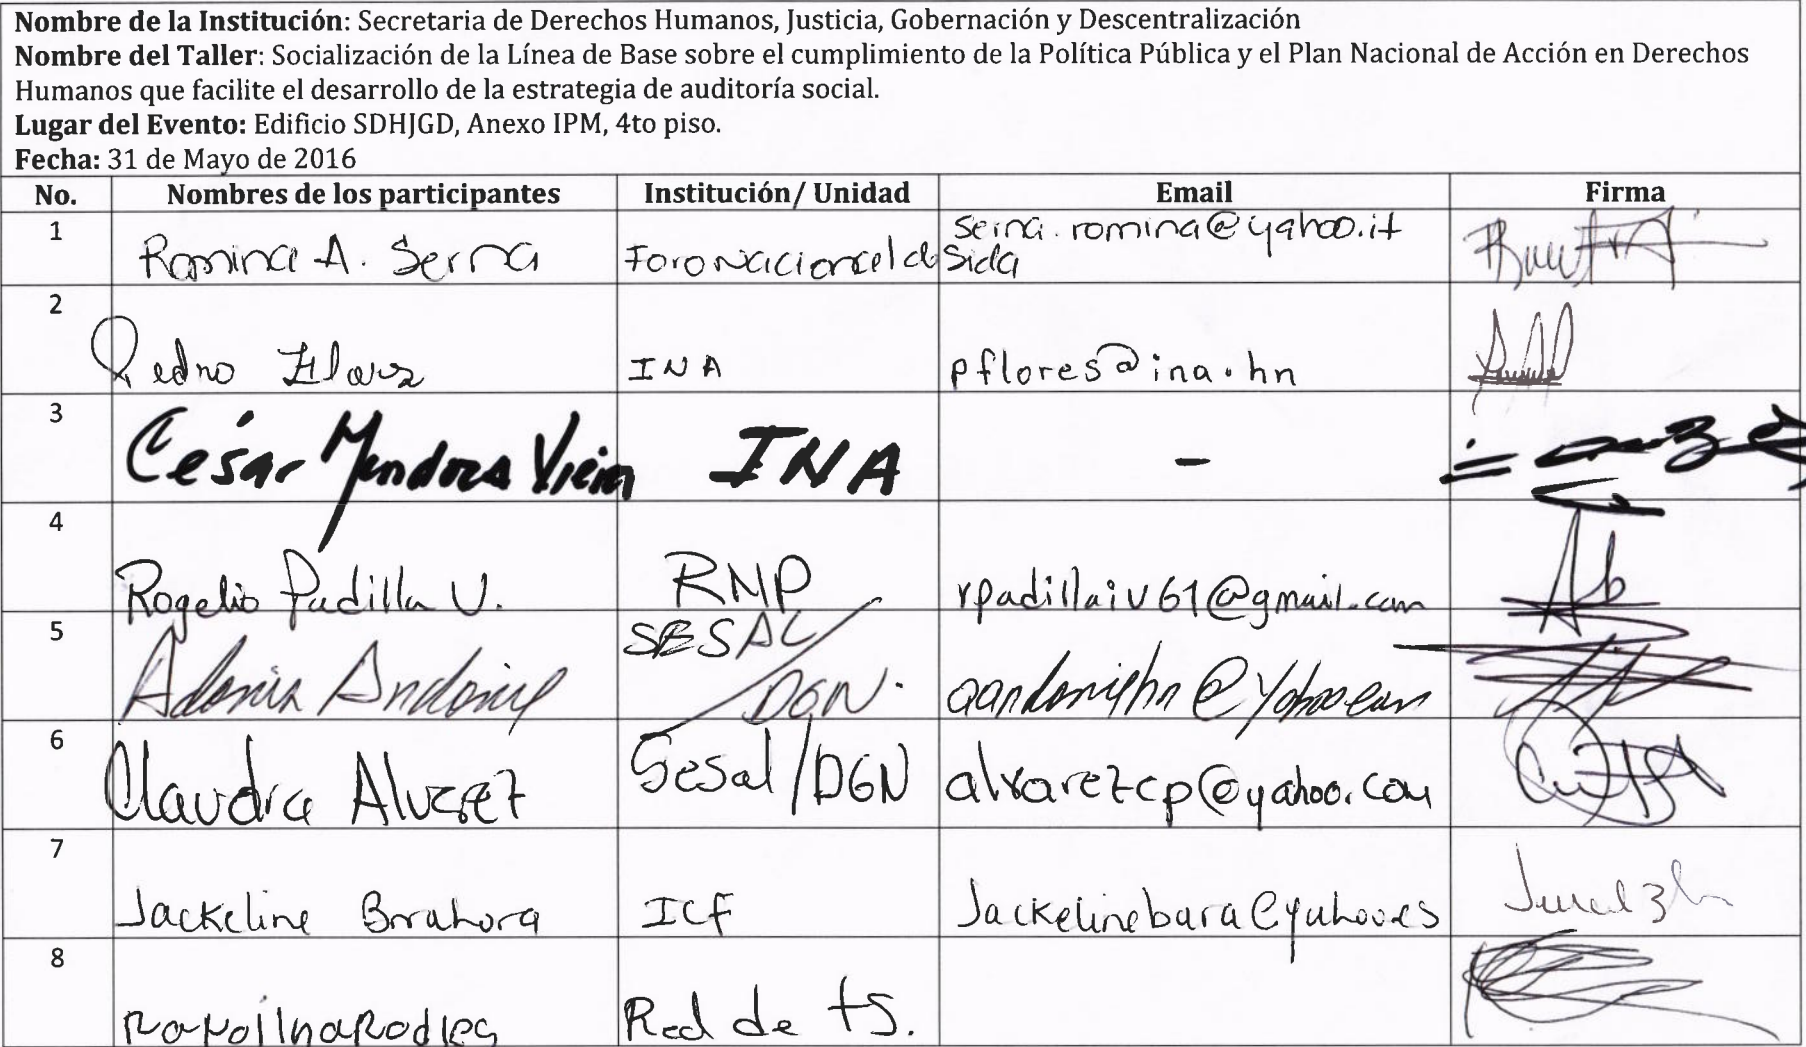 Nombre de la Institución: Secretaria de Derechos Humanos, Justicia, Gobernación y Descentralización
Nombre del Taller: Socialización de la Línea de Base sobre el cumplimiento de la Política Pública y el Plan Nacional de Acción en Derechos
Humanos que facilite el desarrollo de la estrategia de auditoría social.
Lugar del Evento: Edificio SDHJGD, Anexo IPM, 4to piso.
Fecha: 31 de Mayo de 2016
No. Nombres de los participantes Institución/ Unidad Email Firma
1 Romina A. Serna Foro Nacional de Sida serna.romina@yahoo.it
2 Pedro Flores INA pflores@ina.hn
3 César Mendoza INA -
4 Rogelio Padilla V. RNP rpadillaiv61@gmail.com
5 Adonis SESAL/DGN.
6 Claudia Alvarez Sesal/DGN alvarezcp@yahoo.com
7 Jackeline ICF
8 Red de ts.